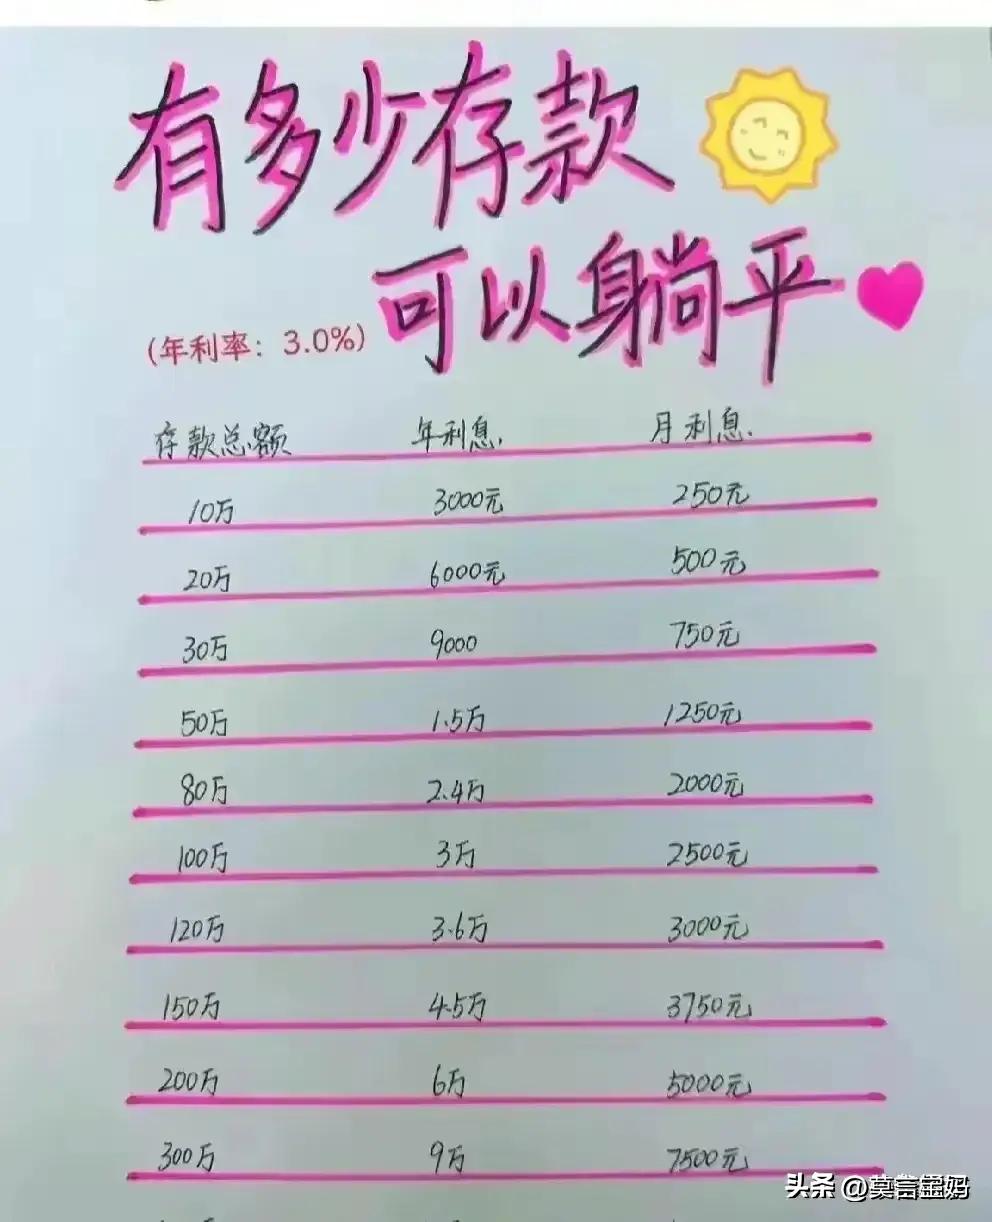 有多少存款
可以躺平
(年利率：3.0%)
存款总额 年利息. 月利息.
10万 3000元 250元
20万 6000元 500元
30万 9000 750元
50万 1.5万 1250元
80万 2.4万 2000元
100万 3万 2500元
120万 3.6万 3000元
150万 4.5万 3750元
200万 6万 5000元
300万 9万 7500元
头条